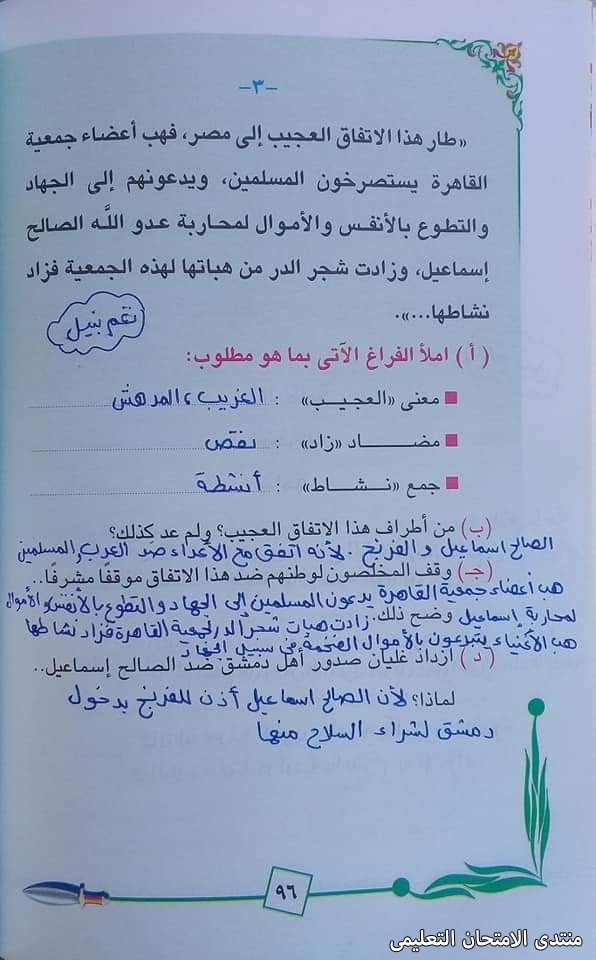 -٣-
«طار هذا الاتفاق العجيب إلى مصر، فهب أعضاء جمعية
القاهرة يستصرخون المسلمين، ويدعونهم إلى الجهاد
والتطوع بالأنفس والأموال لمحاربة عدو اللَّه الصالح
إسماعيل، وزادت شجر الدر من هباتها لهذه الجمعية فزاد
نشاطها...».
نغم نبيل
( أ ) املأ الفراغ الآتى بما هو مطلوب:
معنى «العجيب» : الغريب، المدهش
مضاد «زاد» : نقص
جمع «نشاط» : أنشطة
(ب) من أطراف هذا الاتفاق العجيب؟ ولم عد كذلك؟
الصالح اسماعيل و الفرنج . لأنه اتفق مع الأعداء ضد العرب والمسلمين
(جـ) وقف المخلصون لوطنهم ضد هذا الاتفاق موقفًا مشرفًا..
هب أعضاء جمعية القاهرة يدعون المسلمين إلى الجهاد والتطوع بالأنفس والأموال
لمحاربة إسماعيل وضح ذلك. زادت هبات شجر الدر لجمعية القاهرة فزاد نشاطها
هب الأغنياء يتبرعون بالأموال الضخمة فى سبيل الجهاد
( د ) ازداد غليان صدور أهل دمشق ضد الصالح إسماعيل..
لماذا؟ لأن الصالح اسماعيل أذن للفرنج بدخول
دمشق لشراء السلاح منها
٩٦
منتدى الامتحان التعليمى